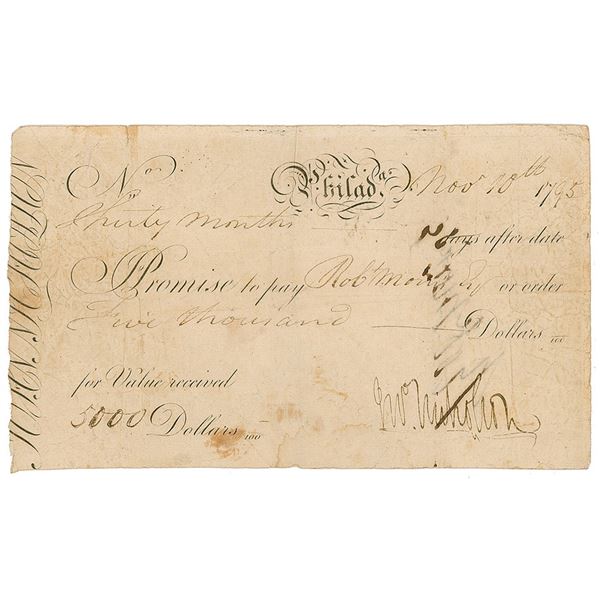 No. Philada. Nov 10th 1795
Thirty months Days after date
I Promise to pay Robt Morris Esq or order
Five thousand Dollars 100
for Value received
5000 Dollars 100 Jno. Nicholson